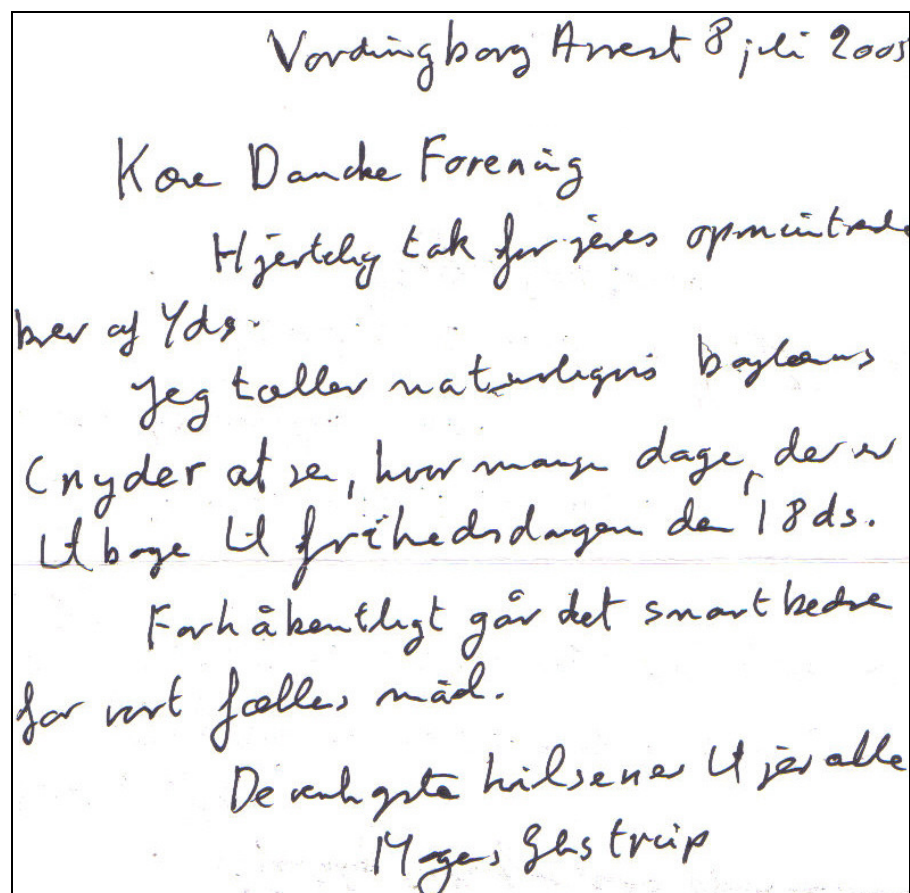 Vordingborg Arrest 8 juli 2005
Kære Danske Forening
Hjertelig tak for jeres opmuntrende
brev af 4ds.
Jeg tæller naturligvis baglæns
(nyder at se, hvor mange dage, der er
tilbage til frihedsdagen den 18ds.
Forhåbentligt går det snart bedre
for vort fælles mål.
De venligste hilsener til jer alle
Mogens Glistrup